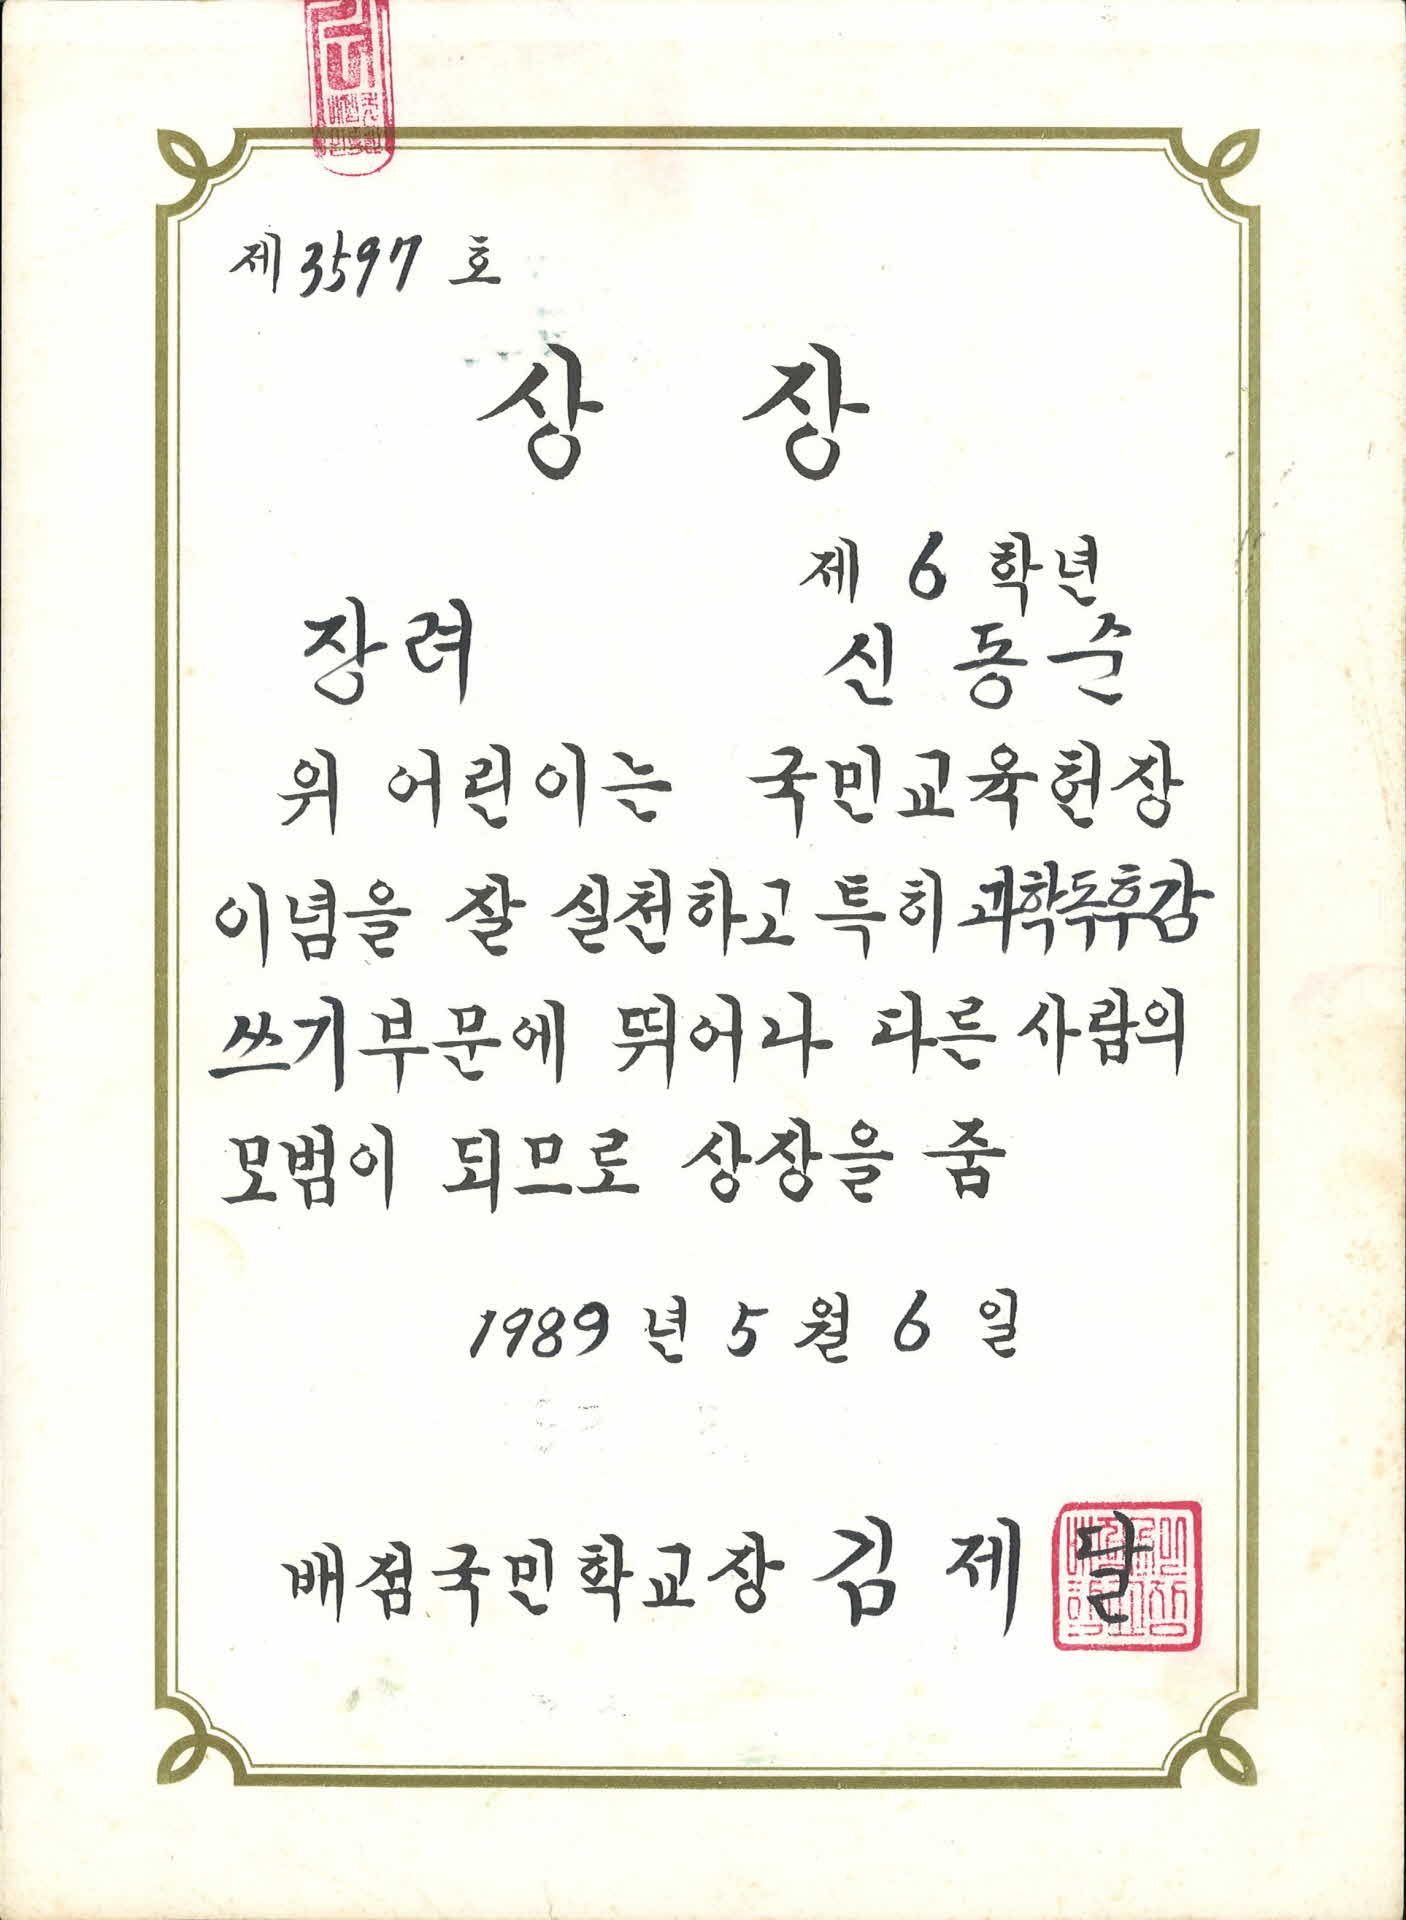 제 3597 호
상 장
제 6 학년
장려 신동순
위 어린이는 국민교육헌장
이념을 잘 실천하고 특히 과학독후감
쓰기부문에 뛰어나 다른 사람의
모범이 되므로 상장을 줌
1989 년 5 월 6 일
배점국민학교장 김 제 달